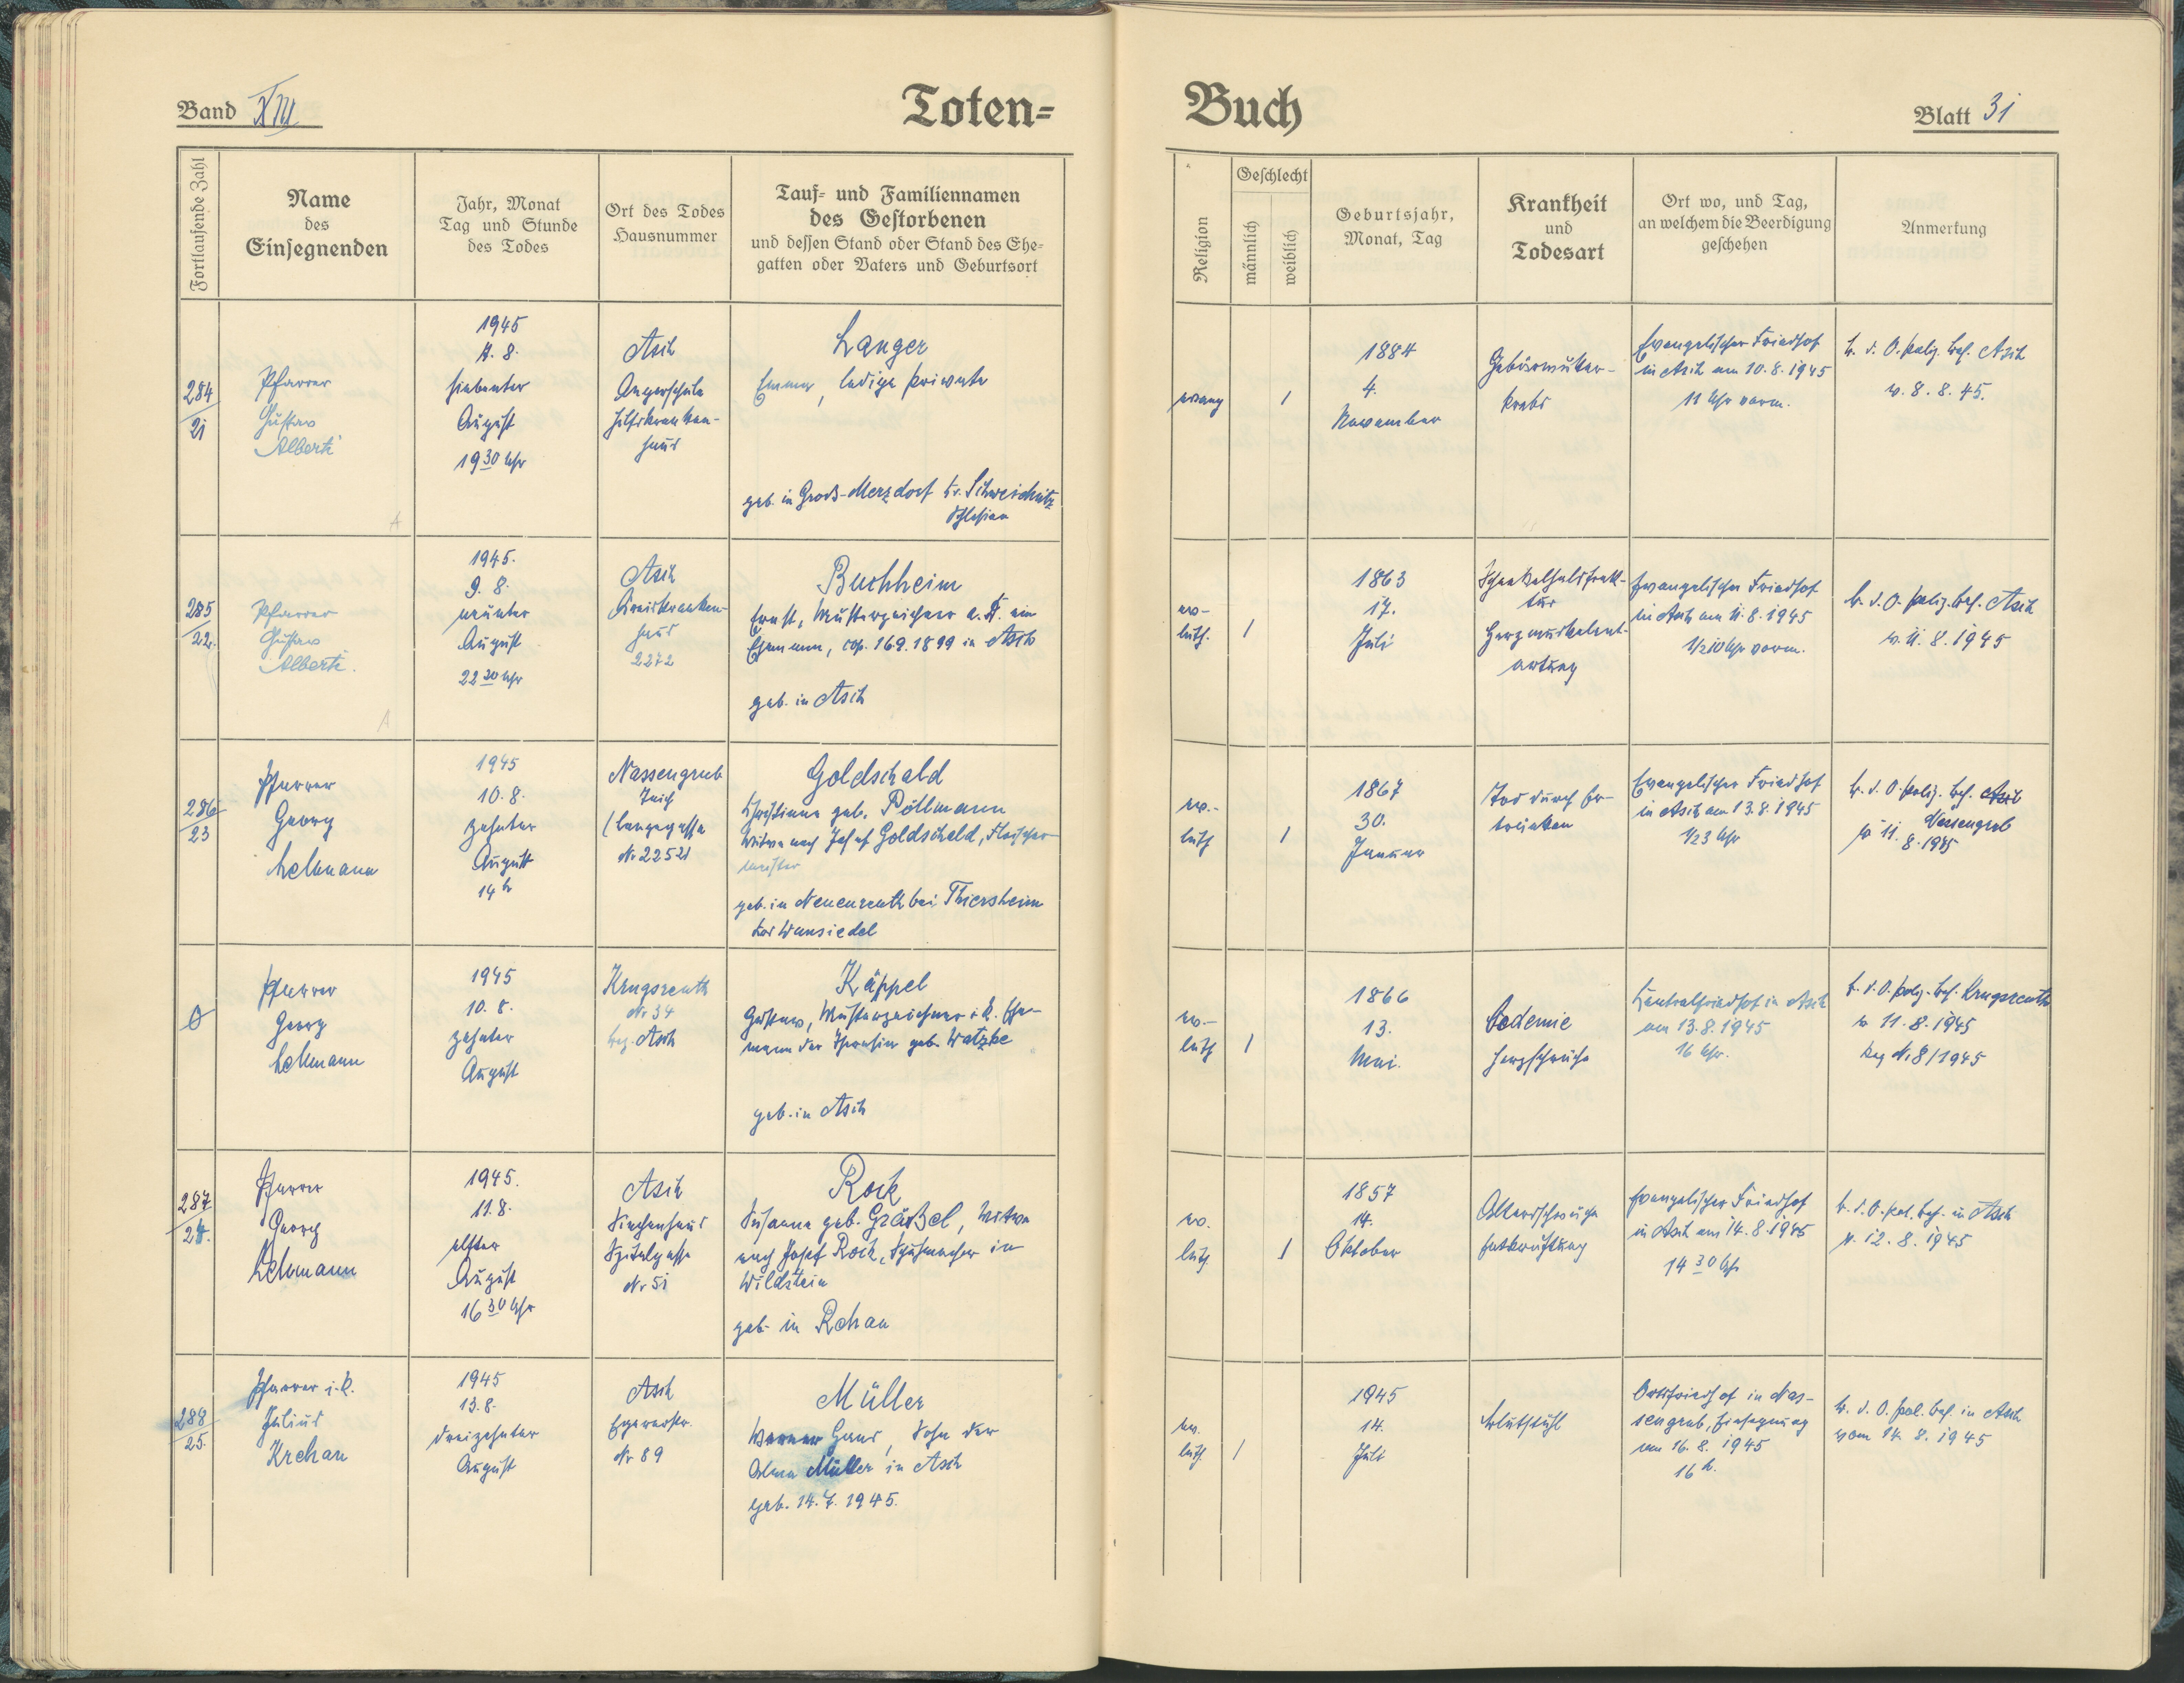 Band XIII
Toten=
Buch
Blatt 31
Fortlaufende Zahl
Name
des
Einsegnenden
Jahr, Monat
Tag und Stunde
des Todes
Ort des Todes
Hausnummer
Tauf= und Familiennamen
des Gestorbenen
und dessen Stand oder Stand des Ehe=
gatten oder Vaters und Geburtsort
Religion
Geschlecht
männlich
weiblich
Geburtsjahr,
Monat, Tag
Krankheit
und
Todesart
Ort wo, und Tag,
an welchem die Beerdigung
geschehen
Anmerkung
284
21
Pfarrer
Gustav
Alberti
1945
7. 8.
siebenter
August
19 30 Uhr
Asch
Angerschule
Hilfskranken-
haus
Langer
Emma, ledige Private
geb. in Gross-Merzdorf Kr. Schweidnitz
Schlesien
evang
1
1884
4.
November
Gebärmutter-
krebs
Evangelischer Friedhof
in Asch am 10. 8. 1945
11 Uhr vorm.
b. d. O. poliz. Bef. Asch
v. 8. 8. 45.
285
22.
Pfarrer
Gustav
Alberti.
1945.
9. 8.
neunter
August
22 30 Uhr
Asch
Kreiskranken-
haus
2272
Buchheim
Ernst, Musterzeichner a. D. ein
Ehemann, cop. 16.9.1899 in Asch
geb. in Asch
ev.-
luth.
1
1863
17.
Juli
Schenkelhalsfrak-
tur
Herzmuskelent-
artung
Evangelischer Friedhof
in Asch am 11. 8. 1945
1/2 10 Uhr vorm.
b. d. O. poliz. Bef. Asch
v. 11. 8. 1945
286
23
Pfarrer
Georg
Lehmann
1945
10. 8.
zehnter
August
14 h
Nassengrub
Teich
(Langegasse
Nr 2252)
Goldschald
Christiana geb. Pöllmann
Witwe nach Josef Goldschald, Fleischer-
meister
geb. in Neuenreuth bei Thiersheim
Bez Wunsiedel
ev.-
luth
1
1867
30.
Januar
Tod durch Er-
trinken
Evangelischer Friedhof
in Asch am 13. 8. 1945
1/2 3 Uhr
b. d. O. poliz. Bef. Asch
Nassengrub
v 11. 8. 1945
0
Pfarrer
Georg
Lehmann
1945
10. 8.
zehnter
August
Krugsreuth
Nr 34
bez. Asch
Käppel
Gustav, Musterzeichner i. R. Ehe-
mann der Theresia geb. Watzke
geb. in Asch
ev.-
luth
1
1866
13.
Mai.
Oedemie
Herzschwäche
Zentralfriedhof in Asch
am 13. 8. 1945
16 Uhr.
b. d. O. poliz. Bef. Krugsreuth
v 11. 8. 1945
Reg Nr 8/1945
287
24.
Pfarrer
Georg
Lehmann
1945.
11. 8.
elfter
August
16 30 Uhr
Asch
Siechenhaus
Spitalgasse
Nr 51
Rock
Susanna geb. Gräßel, Witwe
nach Josef Rock, Schuhmacher in
Wildstein
geb in Rehau
ev.
luth.
1
1857
14.
Oktober
Altersschwäche
Entkräftung
Evangelischer Friedhof
in Asch am 14. 8. 1945
14 30 Uhr
b. d. O. pol. Bef. in Asch
v. 12. 8. 1945
288
25.
Pfarrer i. R.
Julius
Krehan
1945
13. 8.
dreizehnter
August
Asch
Egererstr.
Nr 89
Müller
Werner Hans, Sohn der
Alma Müller in Asch
geb. 14. 7. 1945.
ev.
luth.
1
1945
14.
Juli
Blutstuhl
Ortsfriedhof in Nas-
sengrub, Einsegnung
am 16. 8. 1945
16 h.
b. d. O. pol. Bef. in Asch
vom 14. 8. 1945